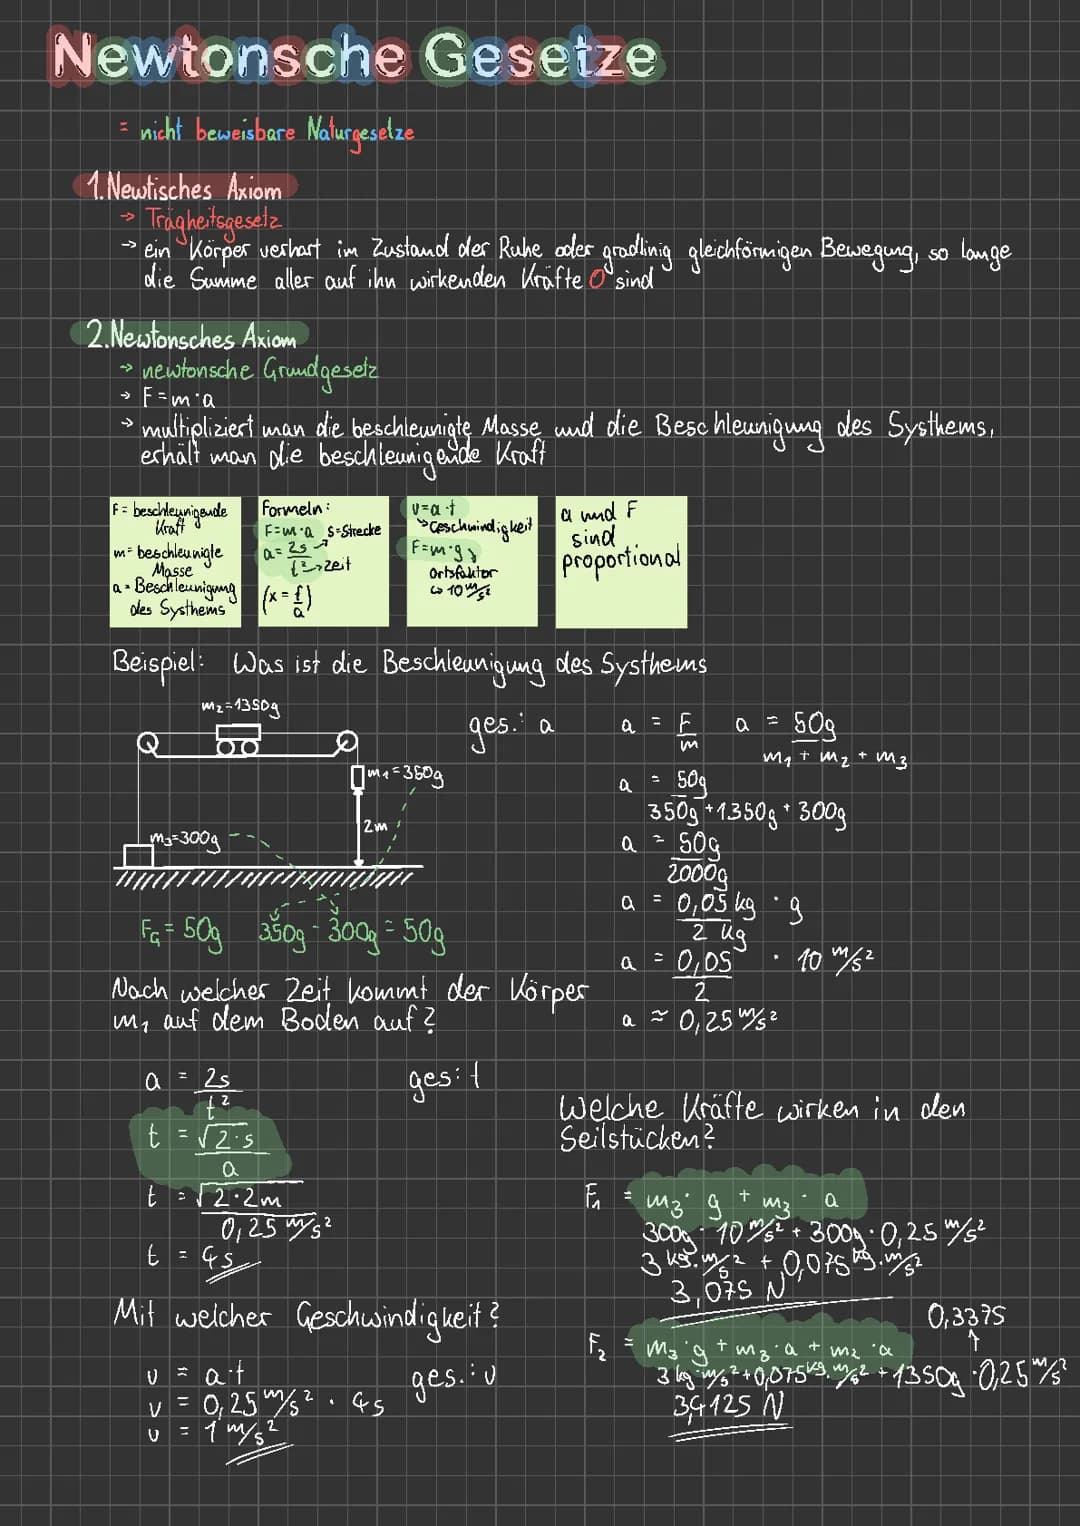 Newtonsche Gesetze
= nicht beweisbare Naturgesetze
1. Newtisches Axiom
→ Trägheitsgesetz
→ ein Körper verhart im Zustand der Ruhe oder gradlinig gleichförmigen Bewegung, so lange
die Summe aller auf ihn wirkenden Kräfte 0 sind
2. Newtonsches Axiom
→ newtonsche Grundgesetz
→ F=m·a
→ multipliziert man die beschleunigte Masse und die Beschleunigung des Systhems,
erhält man die beschleunigende Kraft
F= beschleunigende
Kraft
m= beschleunigte
Masse
a= Beschleunigung
des Systhems
Formeln:
F=m·a s=Strecke
a= 2s
t² → zeit
(x = f/a)
v=a·t
↳ Geschwindigkeit
F=m·g
Ortsfaktor
↳ 10 m/s²
a und F
sind
proportional
Beispiel: Was ist die Beschleunigung des Systhems
m₂=1350g
m₁=350g
2m
m₃=300g
F_G = 50g 350g - 300g = 50g
ges.: a
a = F/m a = 50g
m₁ + m₂ + m₃
a = 50g
350g + 1350g + 300g
a = 50g
2000g
a = 0,05 kg · g
2 kg
a = 0,05 · 10 m/s²
2
a ≈ 0,25 m/s²
Nach welcher Zeit kommt der Körper
m₁ auf dem Boden auf?
a = 2s ges: t
t²
t = √2·s
a
t = √2·2m
0,25 m/s²
t = 4s
Mit welcher Geschwindigkeit?
v = a·t ges.: v
v = 0,25 m/s² · 4s
v = 1 m/s²
Welche Kräfte wirken in den
Seilstücken?
F₁ = m₃ · g + m₃ · a
300g · 10 m/s² + 300g · 0,25 m/s²
3 kg·m/s² + 0,075 kg·m/s²
3,075 N
0,3375
↑
F₂ = m₃·g + m₃·a + m₂·a
3 kg·m/s² + 0,075 kg·m/s² + 1350g · 0,25 m/s²
3,4125 N